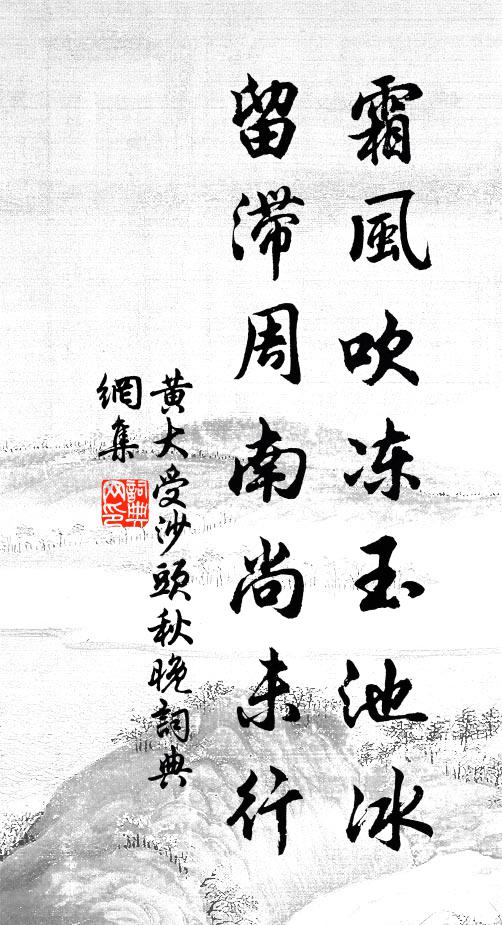 霜風吹冻玉池冰
留滯周南尚未行
黄大受沙頭秋晚詞典
網集
詞典
网印